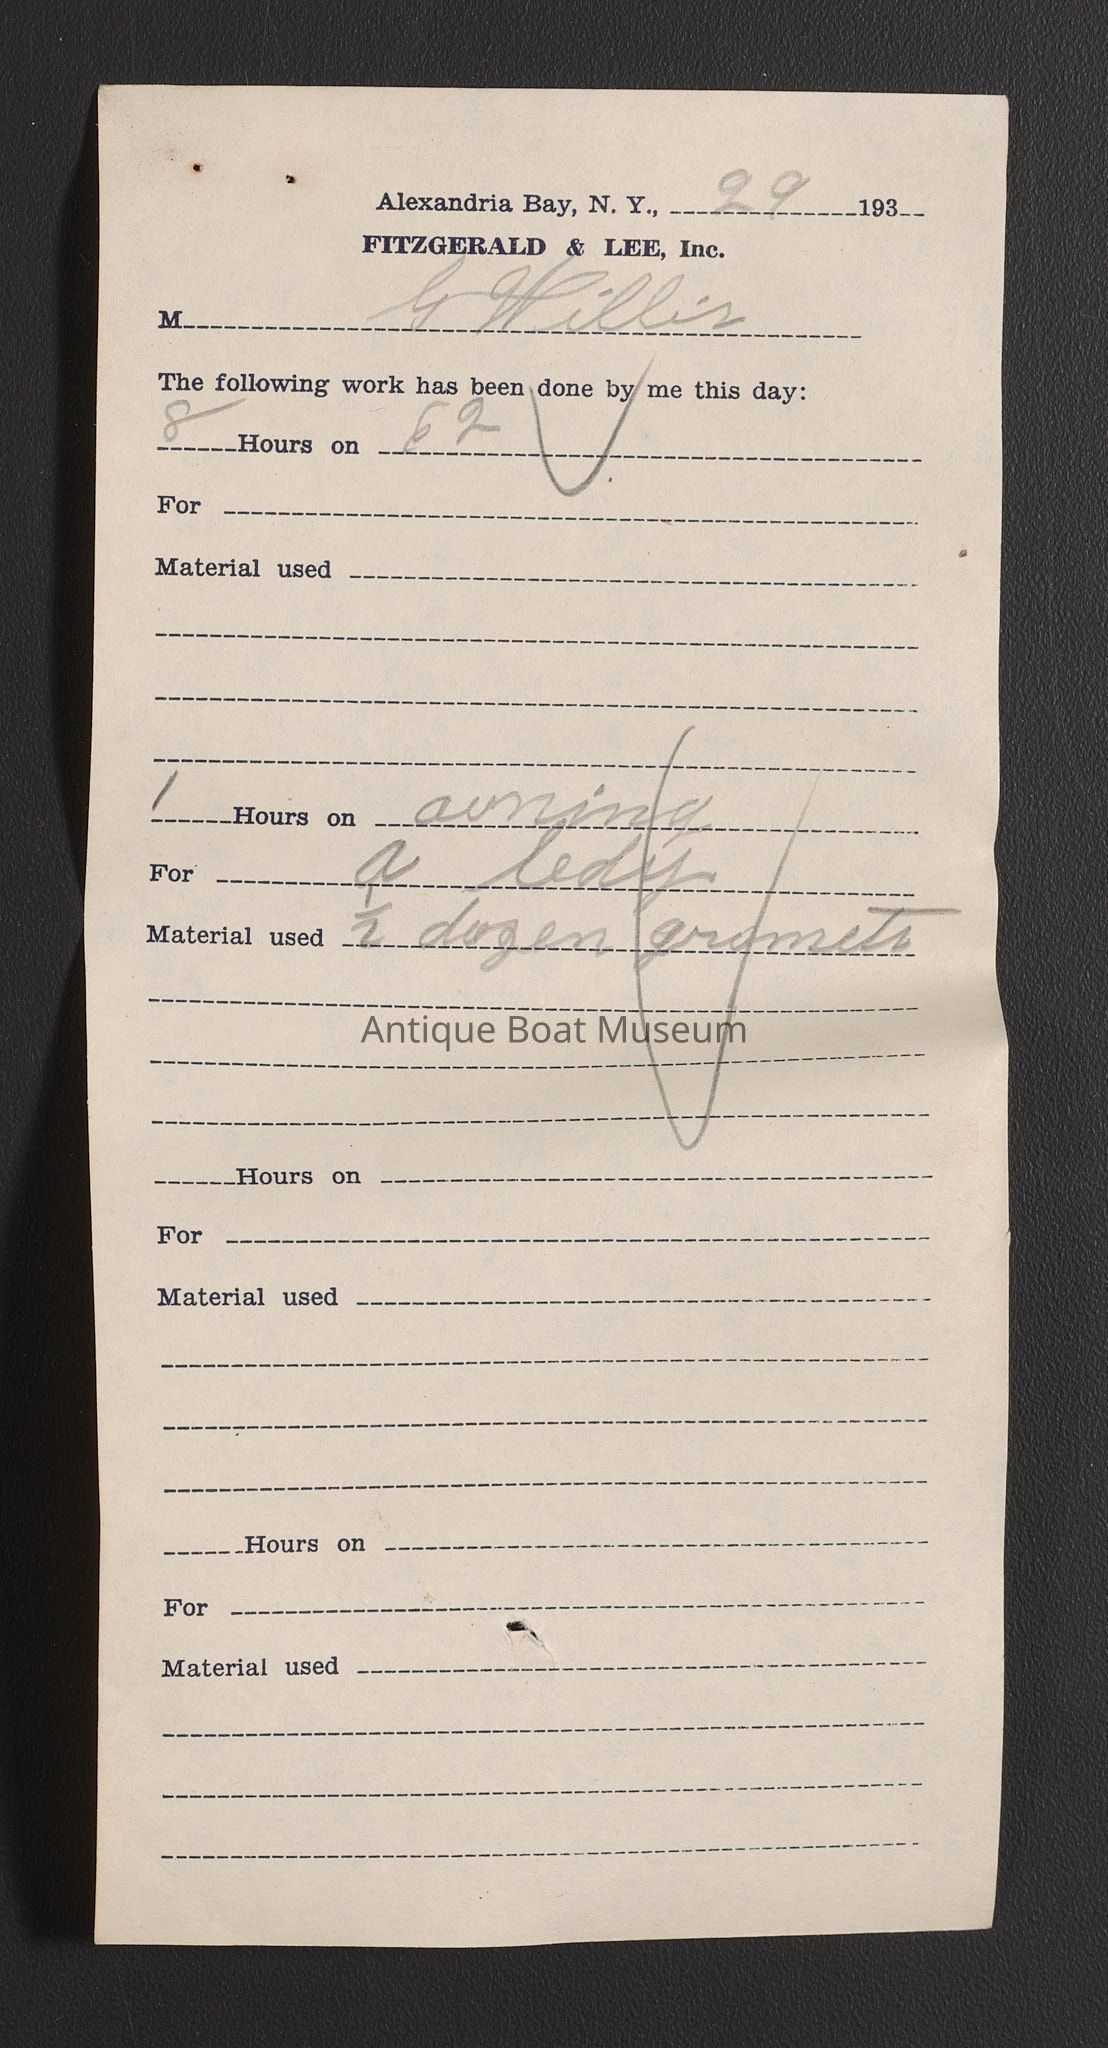 Alexandria Bay, N. Y., 29 193
FITZGERALD & LEE, Inc.
M G Willis
The following work has been done by me this day:
8 Hours on 62
For
Material used
1 Hours on awning
For a ledy
Material used 1/2 dozen gromets
Antique Boat Museum
Hours on
For
Material used
Hours on
For
Material used